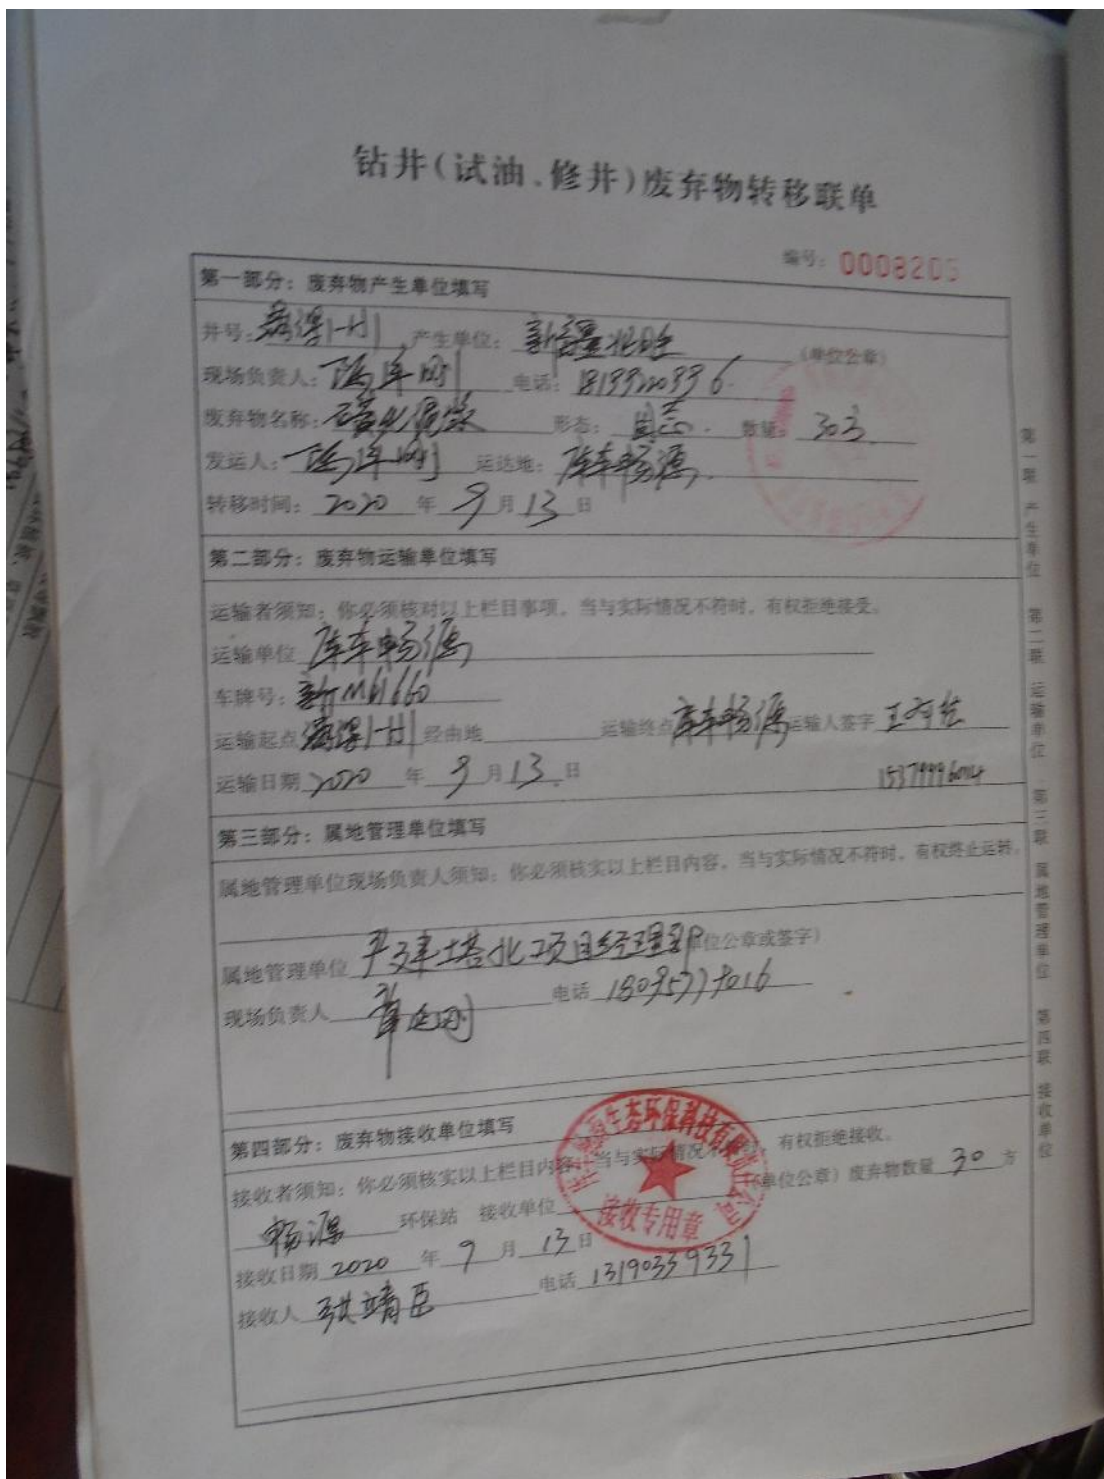 钻井(试油、修井)废弃物转移联单
编号: 0008205
第一部分: 废弃物产生单位填写
井号: 1-H1 产生单位: 新疆北 (单位公章)
现场负责人: 电话:
废弃物名称: 磺化泥浆 形态: 固态. 数量: 30方
发运人: 运达地: 库车畅源.
转移时间: 2020 年 9 月 13 日
第二部分: 废弃物运输单位填写
运输者须知: 你必须核对以上栏目事项, 当与实际情况不符时, 有权拒绝接受。
运输单位 库车畅源
车牌号: 新 M61660
运输起点 1-H1 经由地 运输终点 库车畅源 运输人签字 王
运输日期 2020 年 9 月 13 日
第三部分: 属地管理单位填写
属地管理单位现场负责人须知: 你必须核实以上栏目内容, 当与实际情况不符时, 有权终止运转。
属地管理单位 塔北项目经理部 位公章或签字)
现场负责人 电话
第四部分: 废弃物接收单位填写
接收者须知: 你必须核实以上栏目内容 当与实际情况不 有权拒绝接收。
畅源 环保站 接收单位 单位公章) 废弃物数量 30 方
接收日期 2020 年 9 月 13 日
接收人 靖臣 电话 13190339331
生态环保科技有限责任公司
接收专用章
第一联 产生单位 第二联 运输单位 第三联 属地管理单位 第四联 接收单位